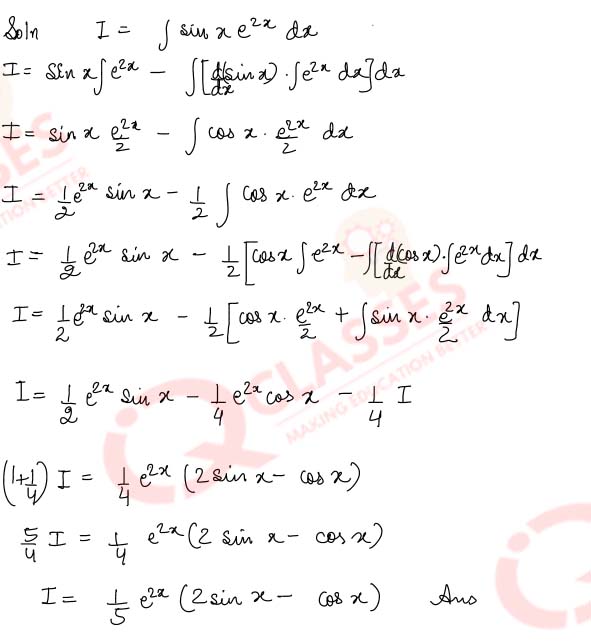 Soln I = ∫ sin x e^{2x} dx
I = sin x ∫ e^{2x} − ∫[d/dx(sin x) · ∫e^{2x} dx] dx
I = sin x e^{2x}/2 − ∫ cos x · e^{2x}/2 dx
I = 1/2 e^{2x} sin x − 1/2 ∫ cos x · e^{2x} dx
I = 1/2 e^{2x} sin x − 1/2 [cos x ∫ e^{2x} − ∫[d/dx(cos x) · ∫e^{2x} dx] dx
I = 1/2 e^{2x} sin x − 1/2 [cos x · e^{2x}/2 + ∫ sin x · e^{2x}/2 dx]
I = 1/2 e^{2x} sin x − 1/4 e^{2x} cos x − 1/4 I
(1+1/4) I = 1/4 e^{2x} (2 sin x − cos x)
5/4 I = 1/4 e^{2x} (2 sin x − cos x)
I = 1/5 e^{2x} (2 sin x − cos x) Ans
CLASSES
MAKING EDUCATION BETTER